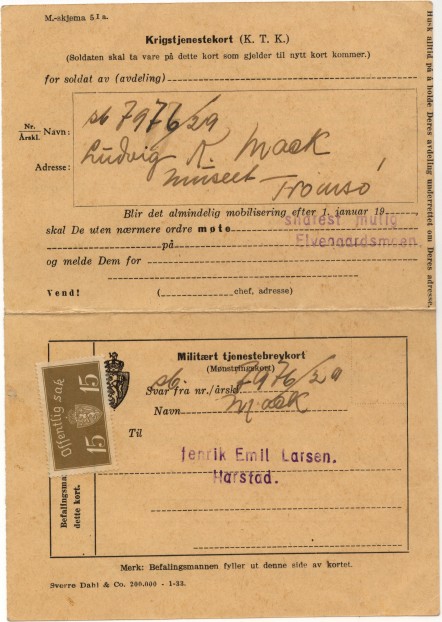 M.-skjema 51a.
Krigstjenestekort (K. T. K.)
(Soldaten skal ta vare på dette kort som gjelder til nytt kort kommer.)
for soldat av (avdeling)
Nr. Årskl.
sb 7976/29
Navn: Ludvig R. Mack
Adresse: Museet Tromsø
Blir det almindelig mobilisering efter 1. januar 19
skal De uten nærmere ordre møte snarest mulig
på Elvegaardsmoen
og melde Dem for
Vend! (chef, adresse)
Husk alltid på å holde Deres avdeling underrettet om Deres adresse.
Militært tjenestebrevkort
(Mønstringskort)
Svar fra nr./årskl. sb. 7976/29
Navn Mack
Til
Henrik Emil Larsen.
Harstad.
Offentlig sak
15 15
Befalingsma
dette kort.
Merk: Befalingsmannen fyller ut denne side av kortet.
Sverre Dahl & Co. 200.000 - 1-33.